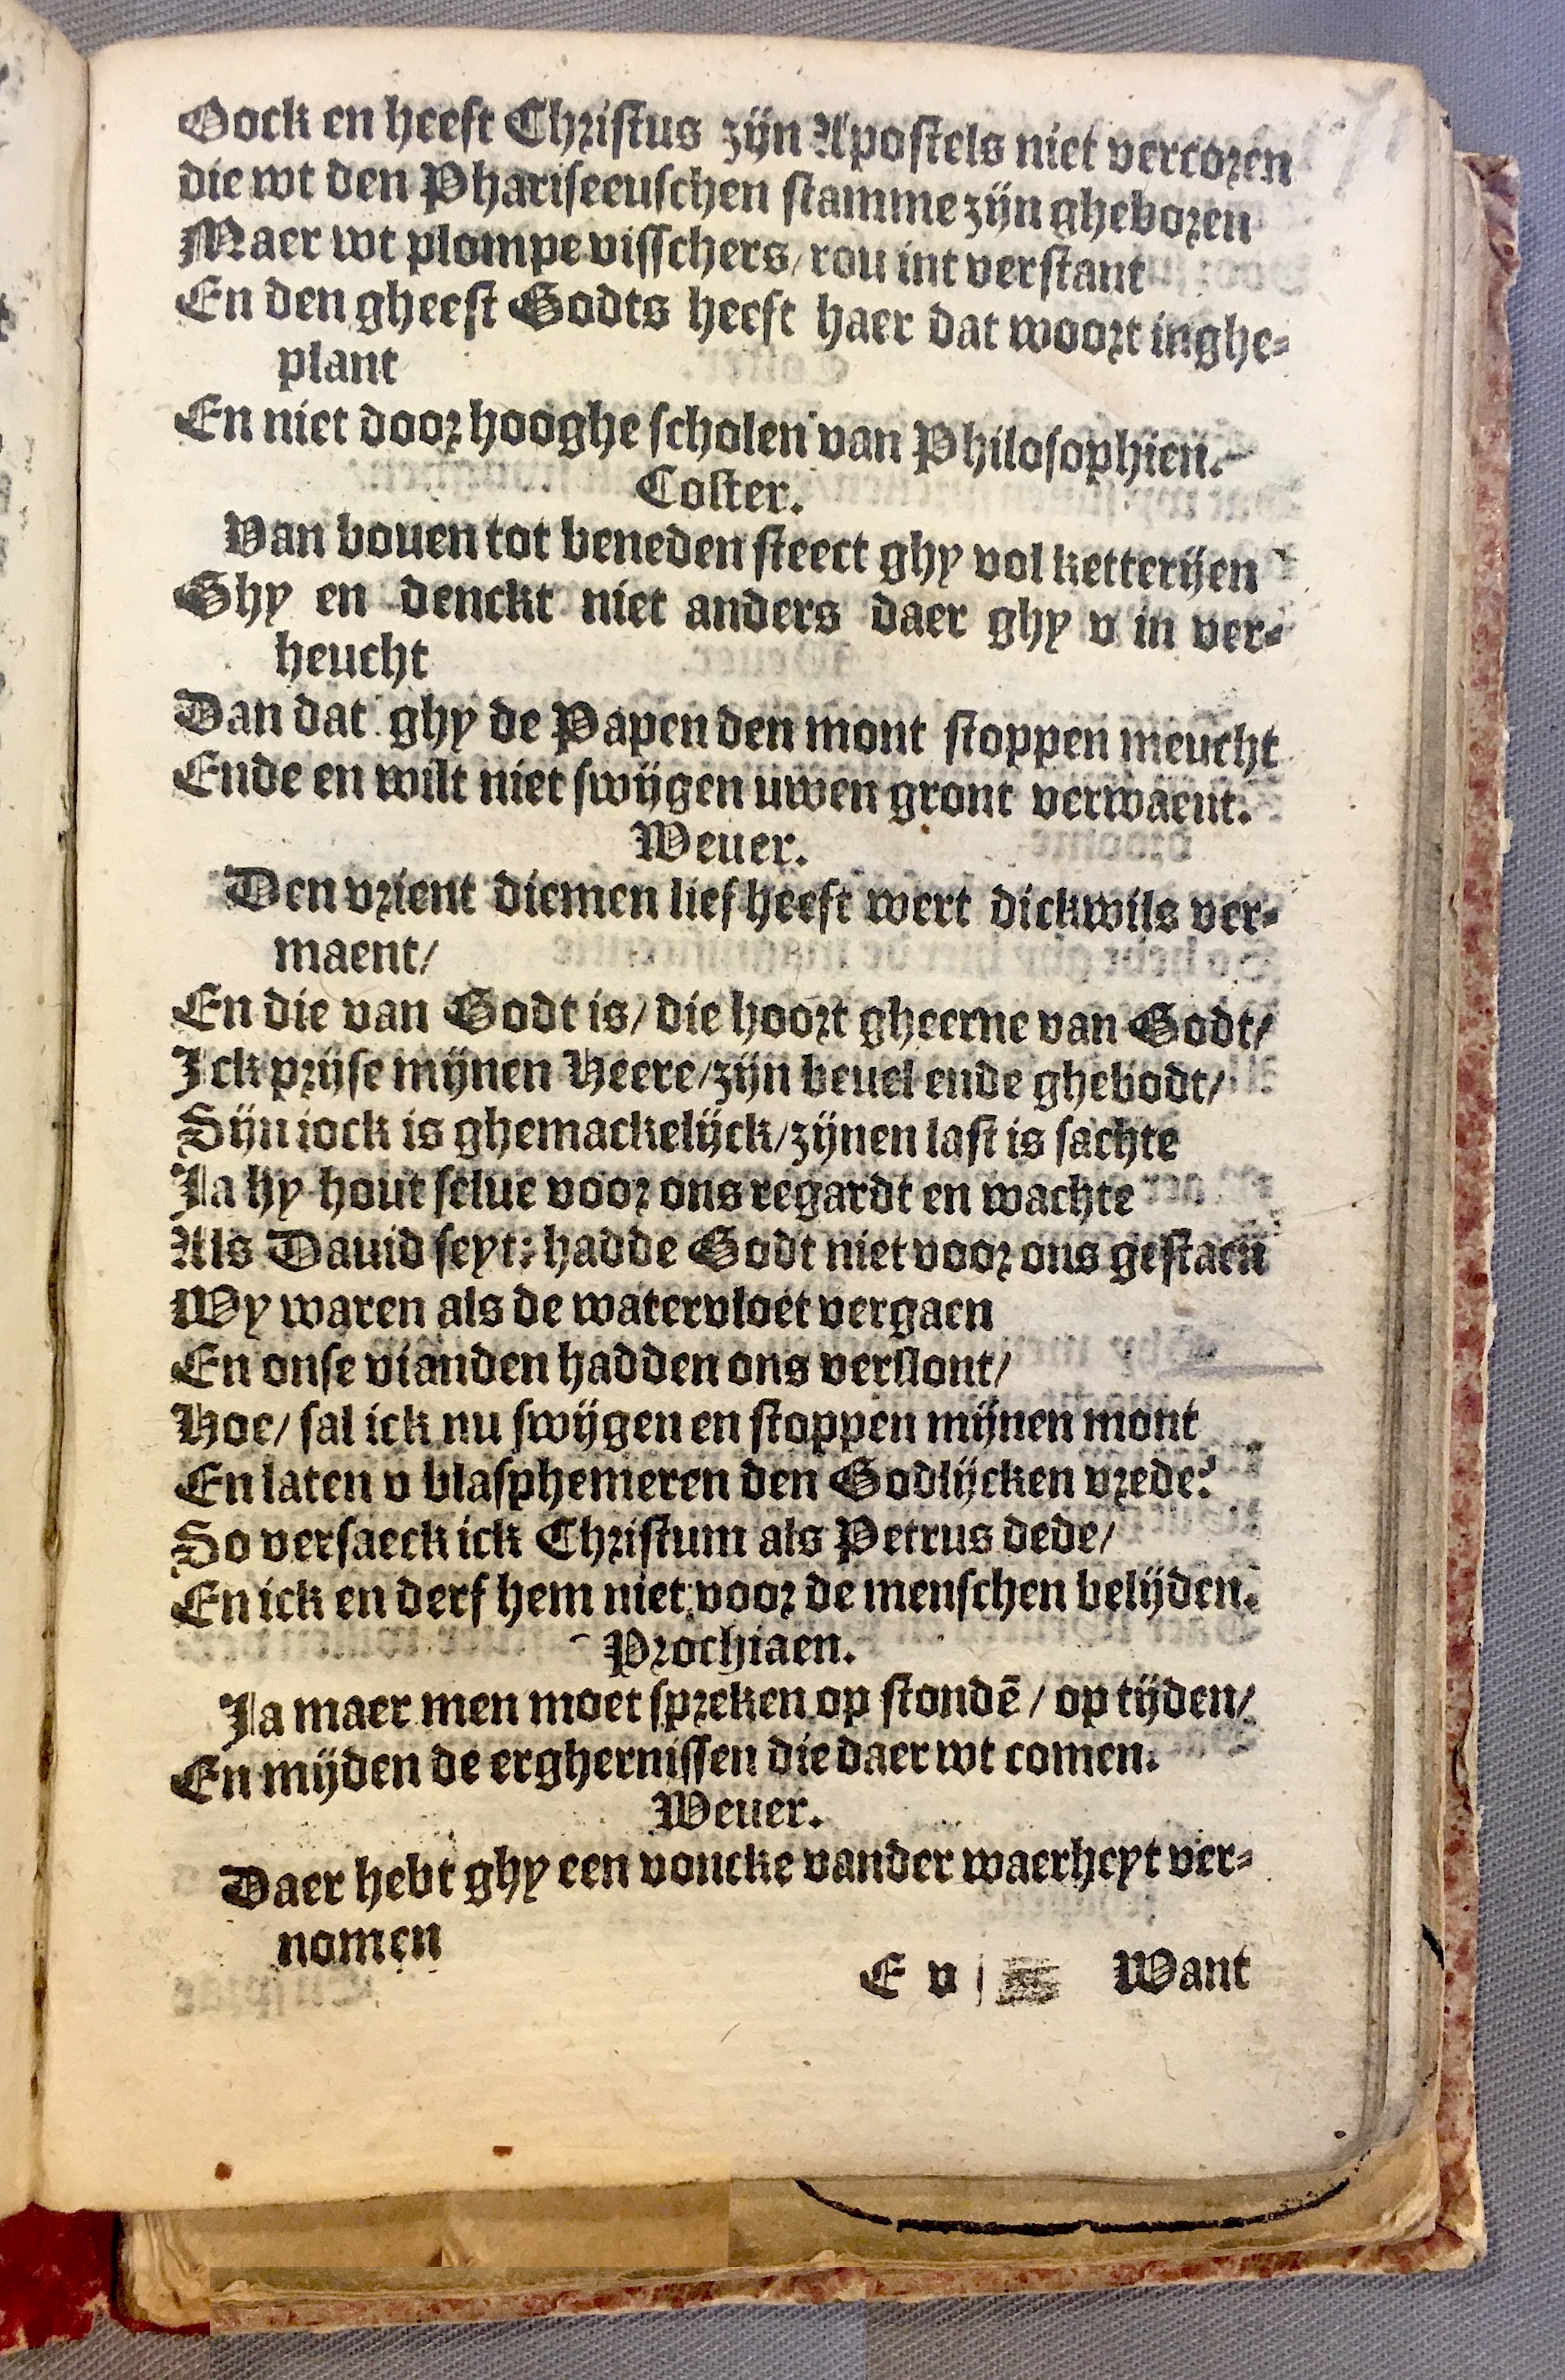 Oock en heeft Christus zijn Apostels niet vercoren
die wt den Phariseeuschen stamme zijn gheboren
Maer wt plompe visschers/ rou int verstant
En den gheest Godts heeft haer dat woort inghe-
plant
En niet door hooghe scholen van Philosophien.
Coster.
Van bouen tot beneden steect ghy vol ketterijen
Ghy en denckt niet anders daer ghy v in ver-
heucht
Dan dat ghy de Papen den mont stoppen meucht
Ende en wilt niet swijgen uwen gront verwaent.
Weuer.
Den vrient diemen lief heeft wert dickwils ver-
maent/
En die van Godt is/ die hoort gheerne van Godt/
Ick prijse mijnen Heere/ zijn beuel ende ghebodt/
Sijn iock is ghemackelijck/ zijnen last is sachte
Ja hy hout selue voor ons regardt en wachte
Als Dauid seyt: hadde Godt niet voor ons gestaen
Wy waren als de watervloet vergaen
En onse vianden hadden ons verslont/
Hoe/ sal ick nu swijgen en stoppen mijnen mont
En laten v blasphemeren den Godlijcken vrede?
So versaeck ick Christum als Petrus dede/
En ick en derf hem niet voor de menschen belijden.
Prochiaen.
Ja maer men moet spreken op stondē / op tijden/
En mijden de erghernissen die daer wt comen.
Weuer.
Daer hebt ghy een voncke vander waerheyt ver-
nomen
E v Want